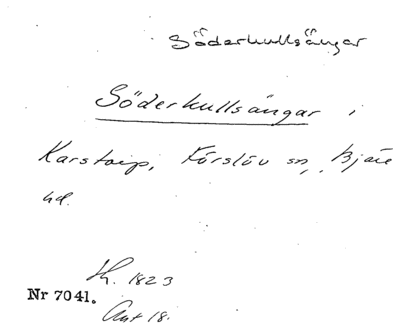 Söderkullsängar
Söderkullsängar i
Karstorp, Förslöv sn, Bjäre
hd.
H. 1823
Nr 7041.
Akt 18.